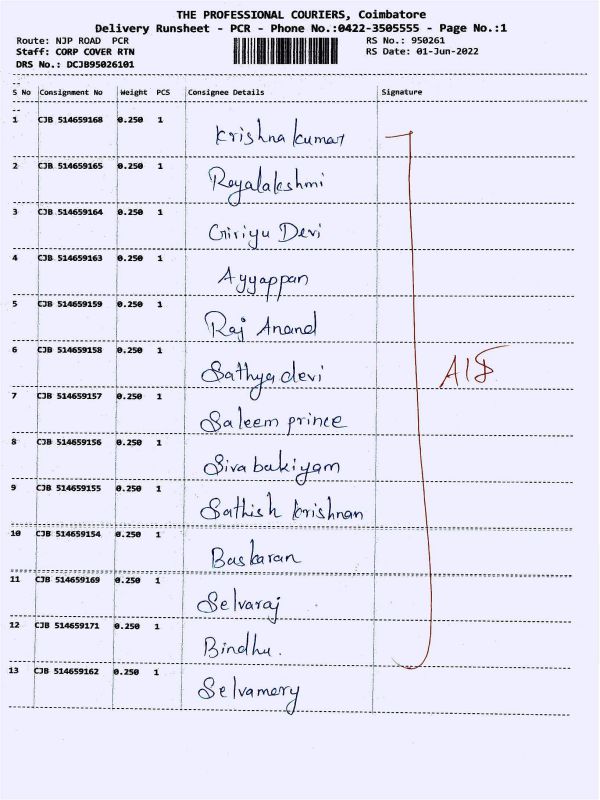 THE PROFESSIONAL COURIERS, Coimbatore
Delivery Runsheet - PCR - Phone No.:0422-3505555 - Page No.:1
Route: NJP ROAD PCR RS No.: 950261
Staff: CORP COVER RTN RS Date: 01-Jun-2022
DRS No.: DCJB95026101
S No Consignment No Weight PCS Consignee Details Signature
1 CJB 514659168 0.250 1 Krishna kumar
2 CJB 514659165 0.250 1 Royalakshmi
3 CJB 514659164 0.250 1 Giriyu Devi
4 CJB 514659163 0.250 1 Ayyappan
5 CJB 514659159 0.250 1 Raj Anand
6 CJB 514659158 0.250 1 Sathya devi
7 CJB 514659157 0.250 1 Saleem prince
8 CJB 514659156 0.250 1 Siva bakiyam
9 CJB 514659155 0.250 1 Sathish krishnan
10 CJB 514659154 0.250 1 Baskaran
11 CJB 514659169 0.250 1 Selvaraj
12 CJB 514659171 0.250 1 Bindhu.
13 CJB 514659162 0.250 1 Selvamery